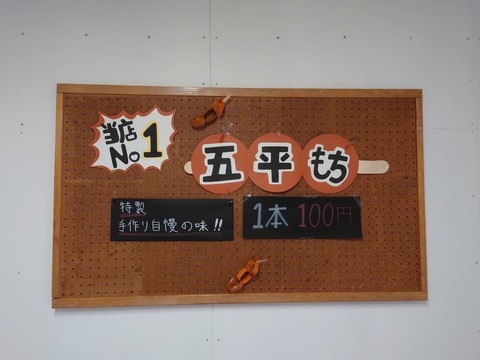 当店
No.1
五平もち
特製
手作り自慢の味!!
1本 100円